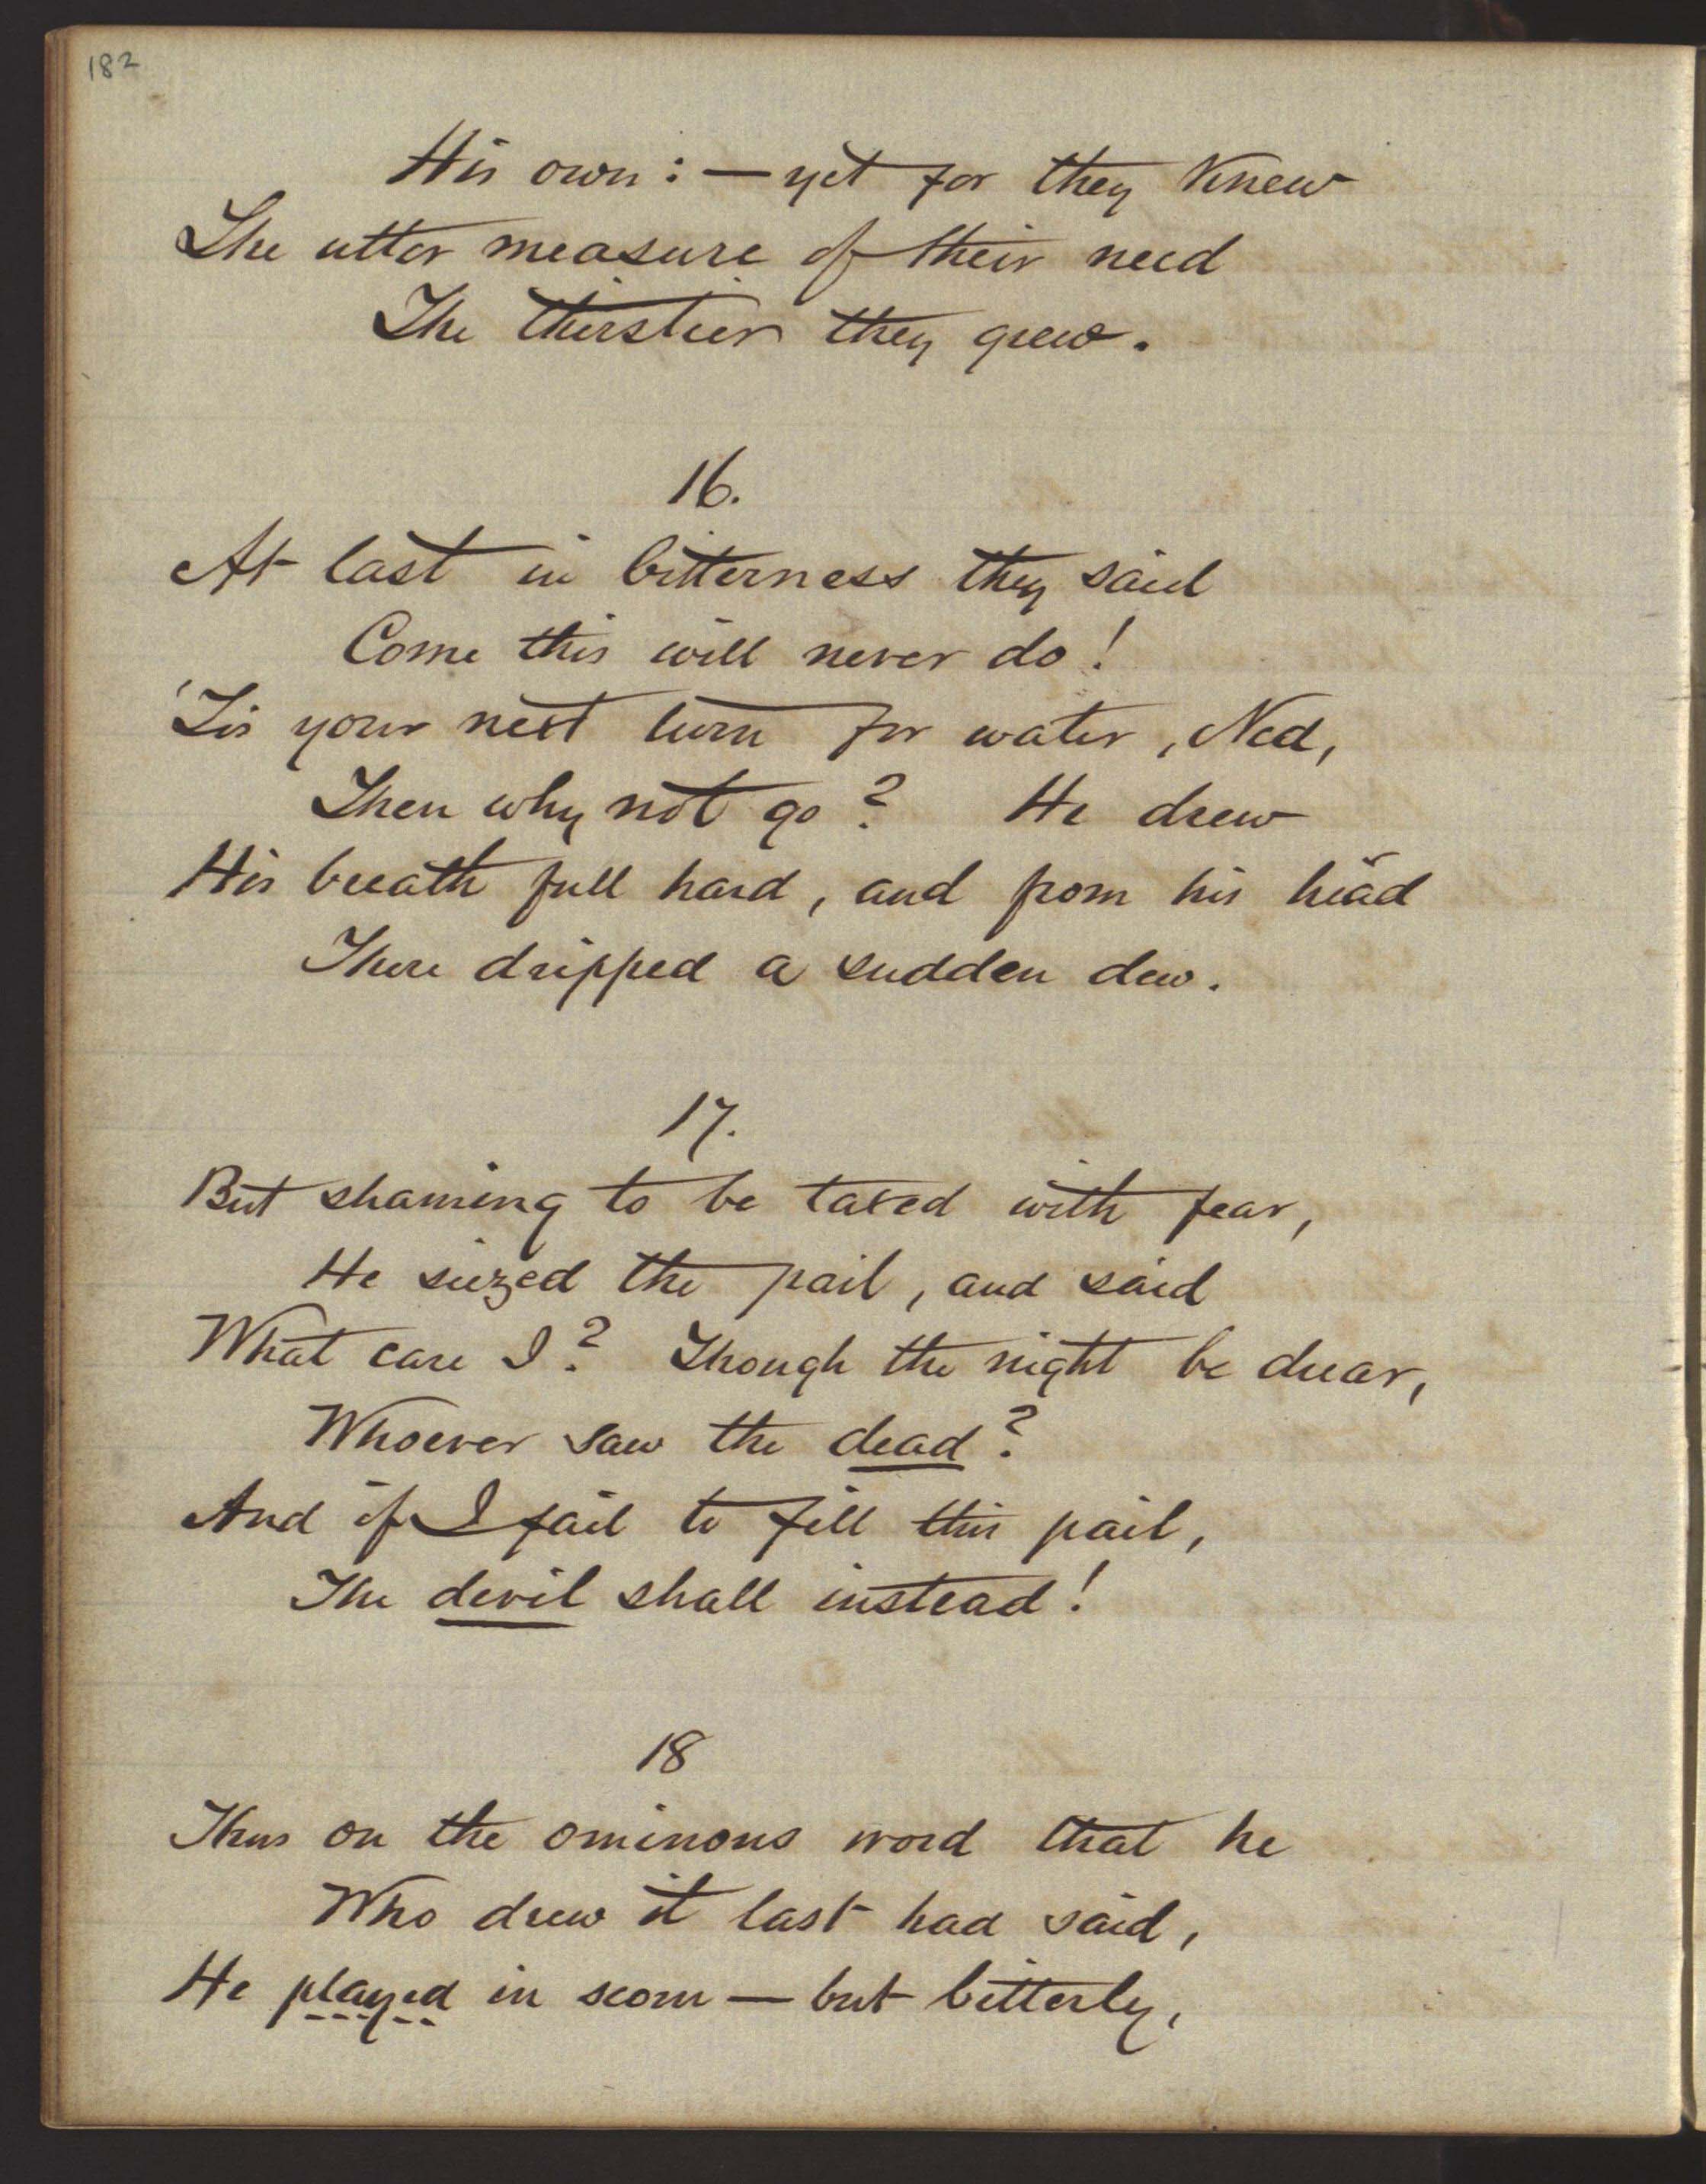 182
His own: — yet for they knew
The utter measure of their need
The thirstier they grew.
16.
At last in bitterness they said
Come this will never do!
'Tis your next turn for water, Ned,
Then why not go? He drew
His breath full hard, and from his head
There dripped a sudden dew.
17.
But shaming to be taxed with fear,
He siezed the pail, and said
What care I? Though the night be drear,
Whoever saw the dead?
And if I fail to fill this pail,
The devil shall instead!
18
Thus on the ominous word that he
Who drew it last had said,
He played in scorn — but bitterly,